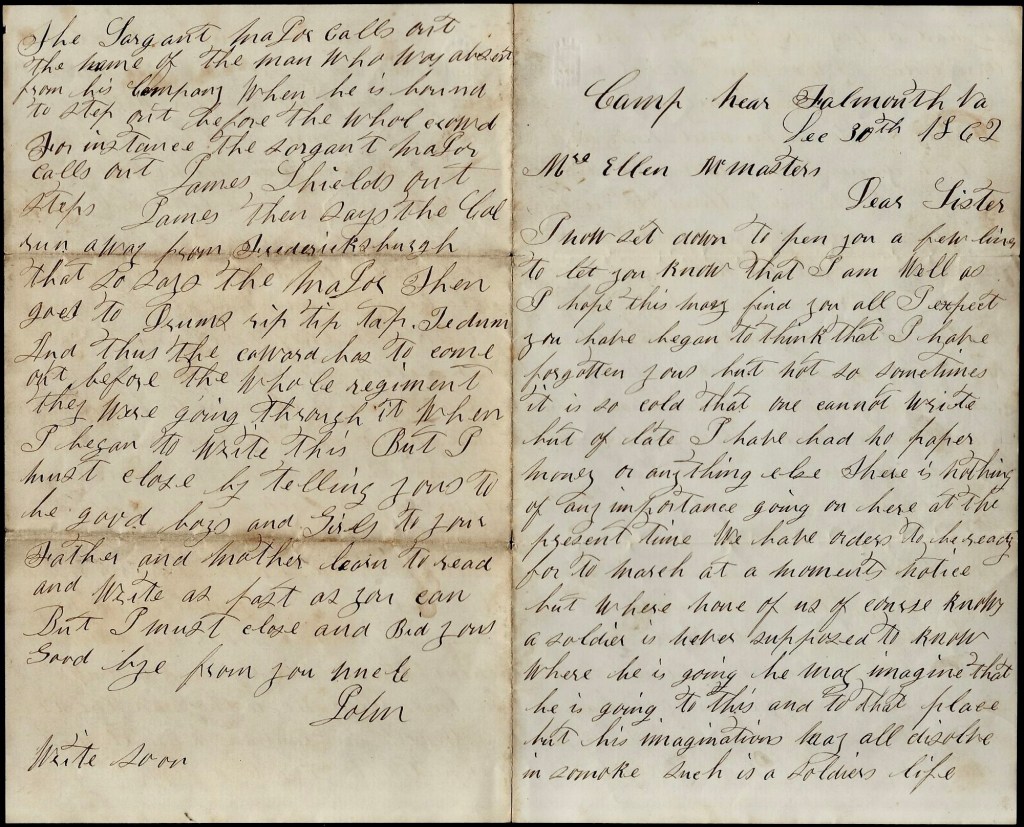 Camp near Falmouth Va
Dec 30th 1862
Mrs Ellen McMasters
Dear Sister
I now set down to pen you a few lines
to let you know that I am well as
I hope this may find you all I expect
you have began to think that I have
forgotten yous but not so sometimes
it is so cold that one cannot write
but of late I have had no paper
money or anything else There is nothing
of any importance going on here at the
present time We have orders to be ready
for to march at a moments notice
but where none of us of course knows
a soldier is never supposed to know
where he is going he may imagine that
he is going to this and to that place
but his imaginations may all disolve
in somoke such is a soldiers life
The Sargant Major calls out
the name of the man who was absent
from his Company When he is bound
to step out before the whol crowd
For instance the sargant major
calls out James Shields out
steps James then says the Col
run away from Fredericksburgh
that so says the major Then
goes to Drums rip tip tap. Tedum
And thus the coward has to come
out before the whole regiment
they were going through it when
I began to write this But I
must close by telling yous to
be good boys and Girls to your
Father and mother learn to read
and write as fast as you can
But I must close and Bid yous
Good bye from you uncle
John
Write soon